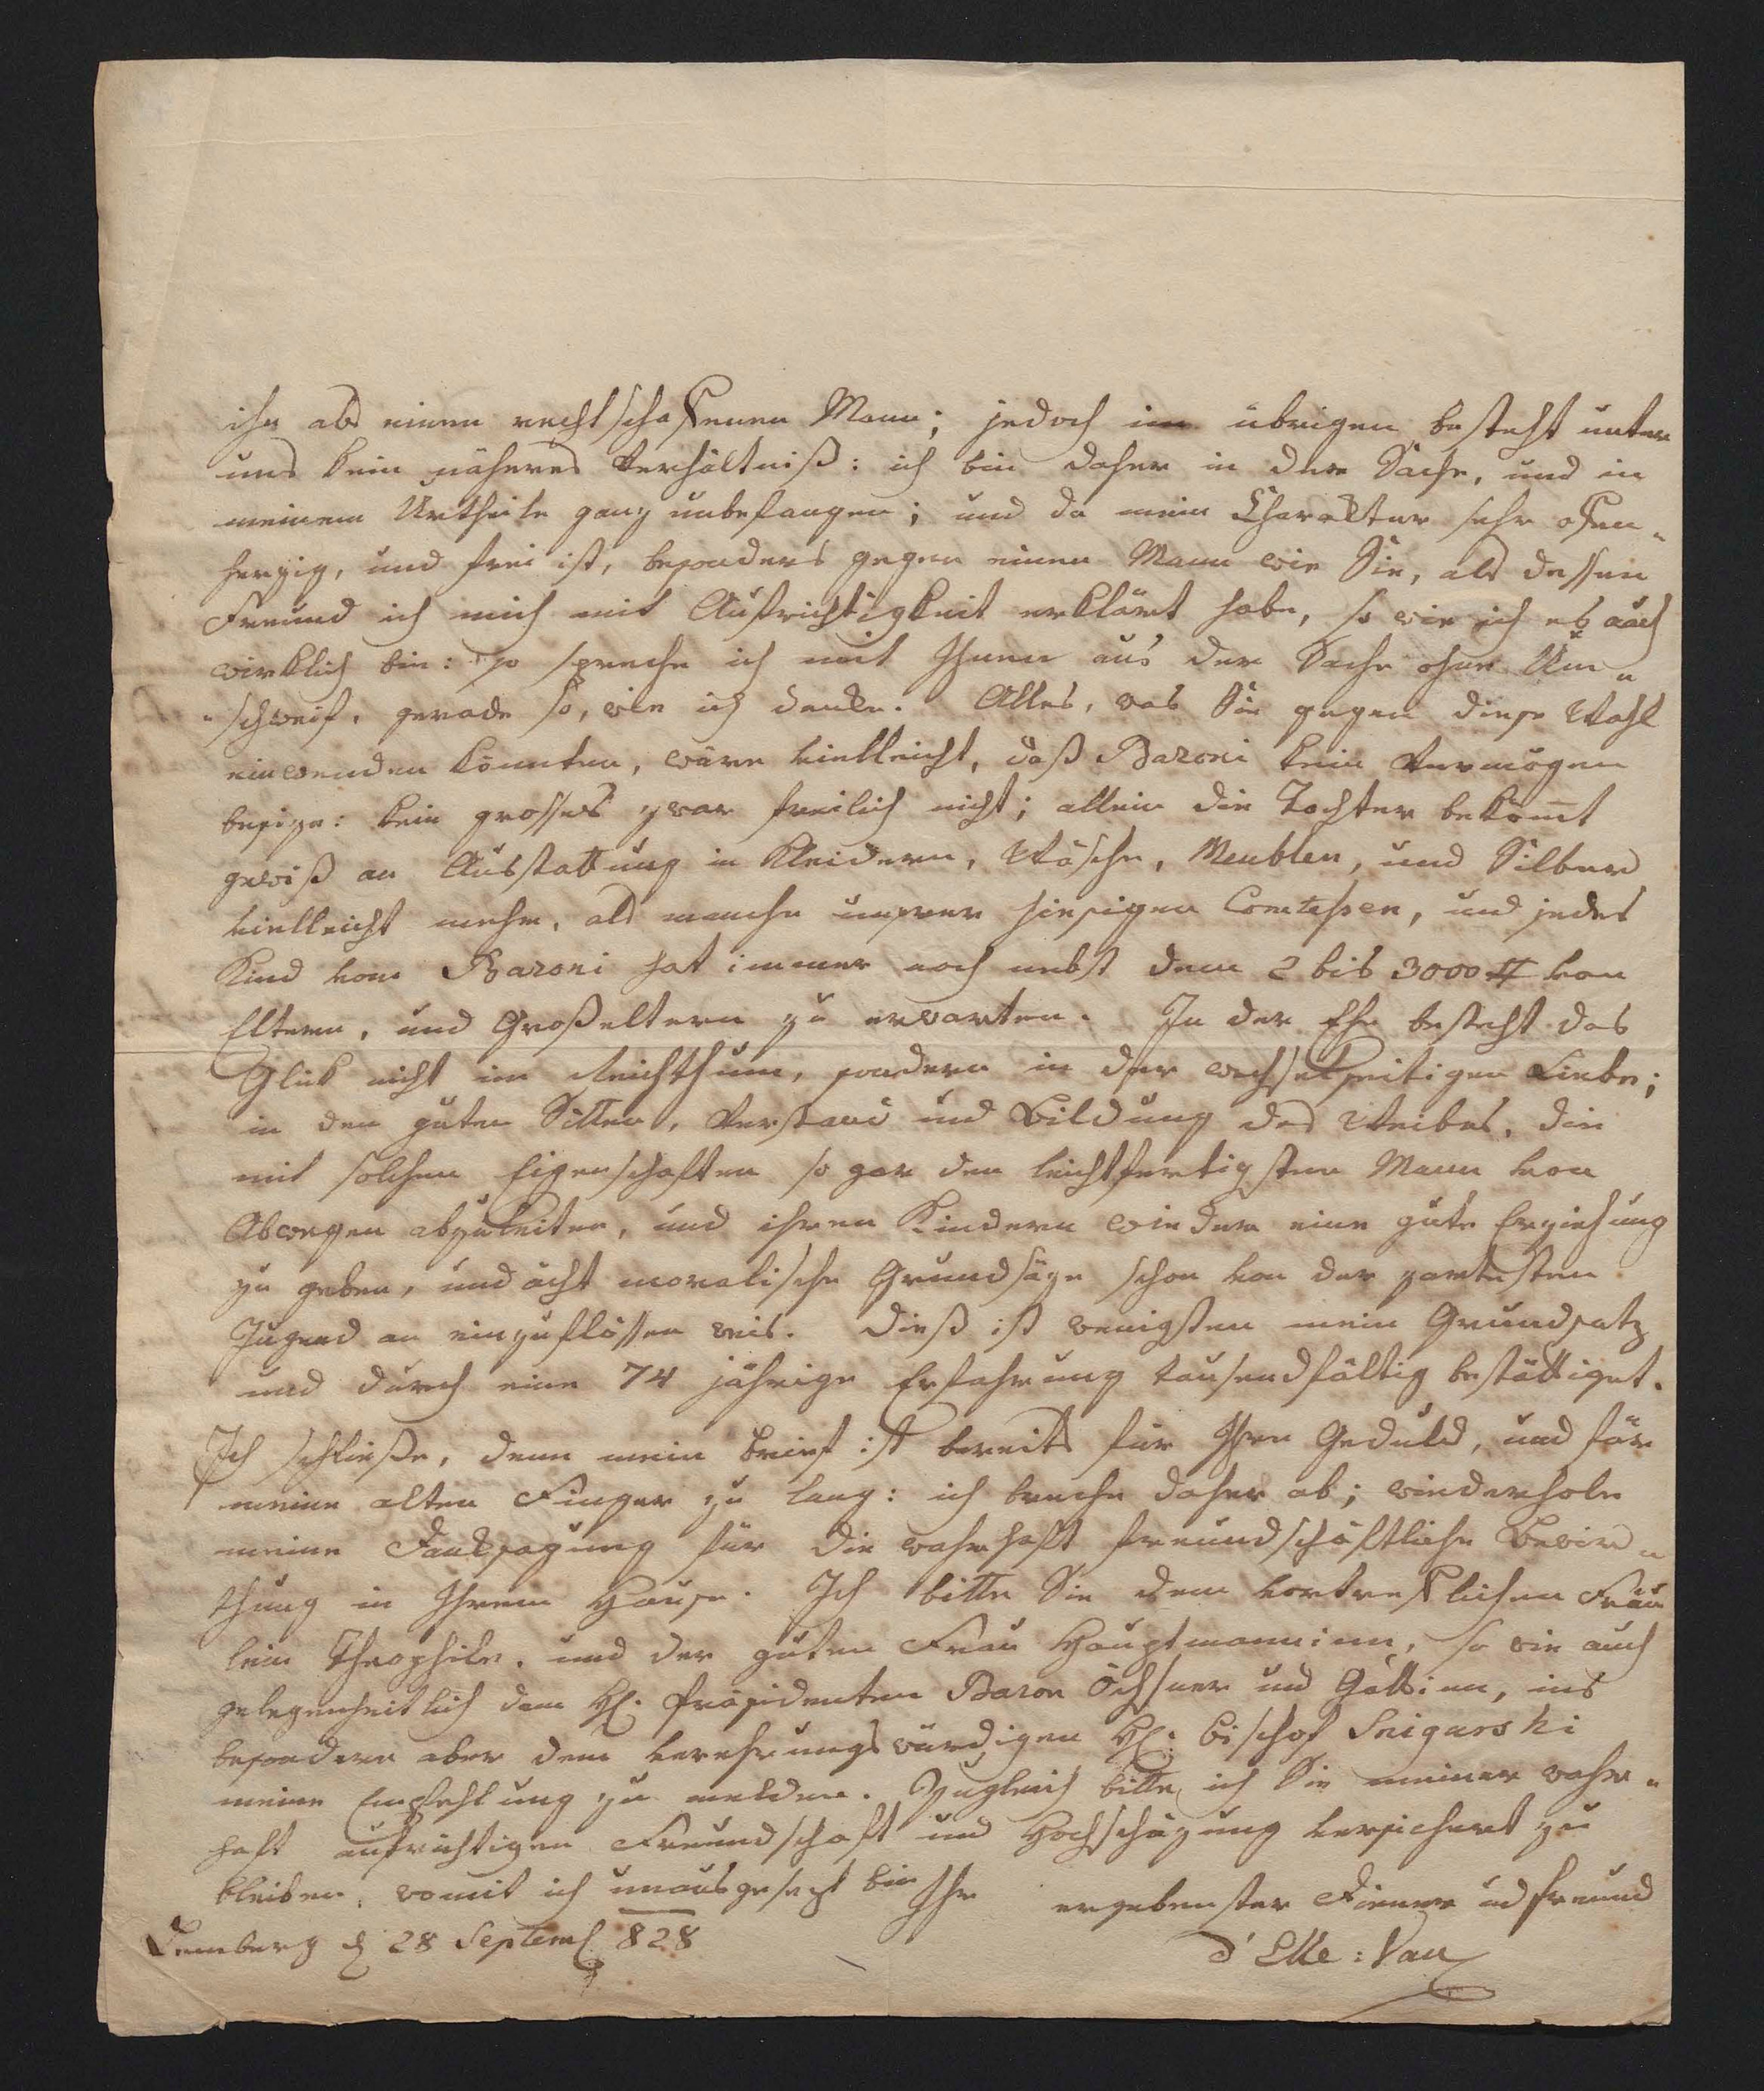 ihn als einen rechtschaffenen Mann; jedoch im übrigen besteht unter
uns kein näheres Verhältniß: ich bin daher in der Sache, und in
meinem Urtheile ganz unbefangen; und da mein Charakter sehr offen„
herzig, und frei ist, besonders gegen einen Mann wie Sie, als dessen
Freund ich mich mit Aufrichtigkeit erklärt habe, so wie ich es auch
wirklich bin: so spreche ich mit Ihnen aus der Sache ohne Um„
„schweif, gerade so, wie ich denke. Alles, was Sie gegen diese Wahl
einwenden könnten, wäre vielleicht, daß Baroni kein Vermögen
besize: kein grosses zwar freilich nicht; allein die Tochter bekom̅t
gewiß an Ausstattung in Kleidern, Wäsche, Meublen, und Silber
vielleicht mehr, als manche unsrer hiesigen Comtessen, und jedes
Kind vom Baroni hat immer noch nebst dem 2 bis 3000 # von
Eltern, und Großeltern zu erwarten. In der Ehe besteht das
Glük nicht im Reichthum, sondern in der wechselseitigen Liebe;
in den guten Sitten, Verstand und Bildung des Weibes, die
mit solchen Eigenschaften so gar den leichtfertigsten Mann von
Abwegen abzuleiten, und ihren Kindern wieder eine gute Erziehung
zu geben, und ächt moralische Grundsäze schon von der zartesten
Jugend an einzuflössen weis. Dieß ist wenigsten mein Grundsatz
und durch eine 74 jährige Erfahrung tausendfältig bestättiget.
Ich schließe, denn mein Brief ist bereits für Ihre Geduld, und für
meine alten Finger zu lang: ich breche daher ab; wiederhole
meine Danksagung für die wahrhaft freundschäftliche Bewir„
thung in Ihrem Hause. Ich bitte Sie dem vortreflichen Fräu
lein Theophile, und der guten Frau Hauptmanninn, so wie auch
gelegenheitlich dem H. Präsidenten Baron Öchsner und Gattinn, ins
besondere aber dem verehrungswürdigen H. Bischof Snigurski
meine Empfehlung zu melden. Zugleich bitte ich Sie meiner wahr„
haft aufrichtigen Freundschaft und Hochschäzung versichert zu
bleiben, womit ich unausgesezt bin Ihr ergebenster Diener und Freund
Lemberg d 28 Septemb 828
d'Elle: Vau